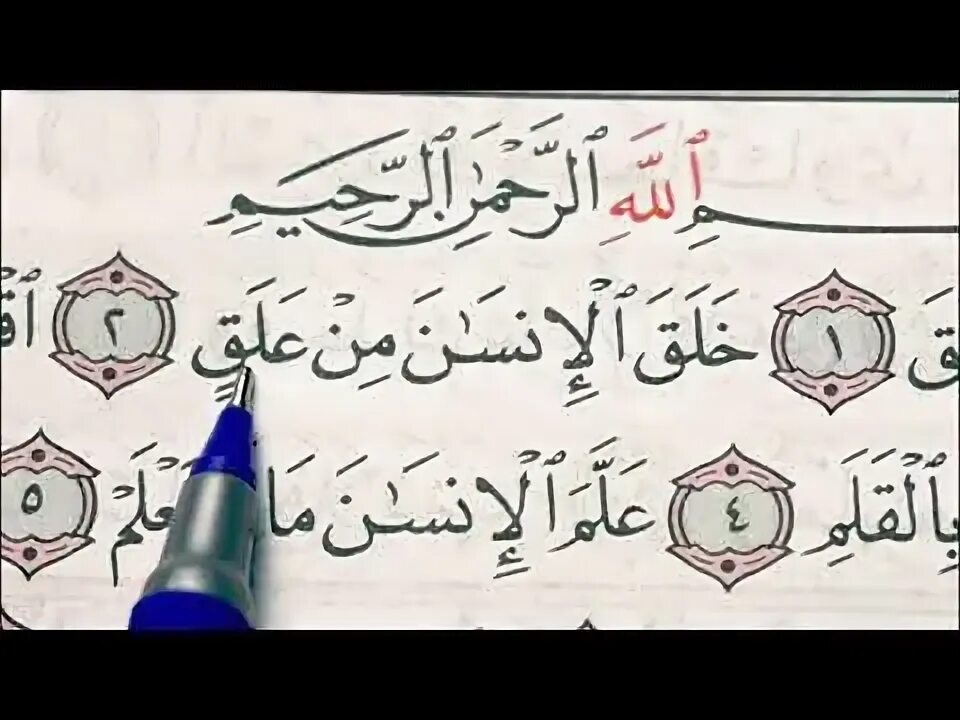 ٱللَّهِ ٱلرَّحْمَٰنِ ٱلرَّحِيمِ
١ خَلَقَ ٱلْإِنسَٰنَ مِنْ عَلَقٍ ٢
بِٱلْقَلَمِ ٤ عَلَّمَ ٱلْإِنسَٰنَ مَا ٥